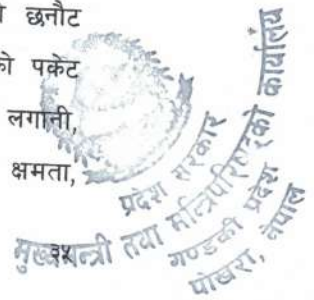 छनौट
को पकेट
लगानी,
क्षमता,
प्रदेश सरकार
मुख्यमन्त्री तथा मन्त्रिपरिषद्को कार्यालय
गण्डकी प्रदेश
पोखरा, नेपाल
३५